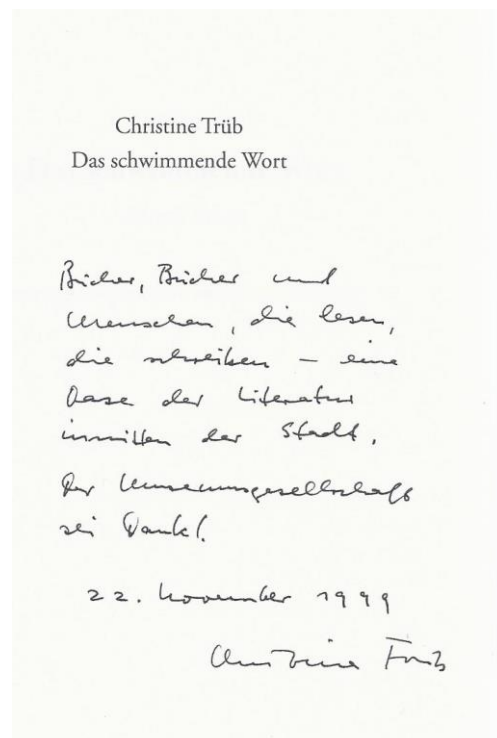 Christine Trüb
Das schwimmende Wort
Bücher, Bücher und
Menschen, die lesen,
die schreiben – eine
Oase der Literatur
inmitten der Stadt.
Der Museumsgesellschaft
sei Dank!
22. November 1999
Christine Trüb